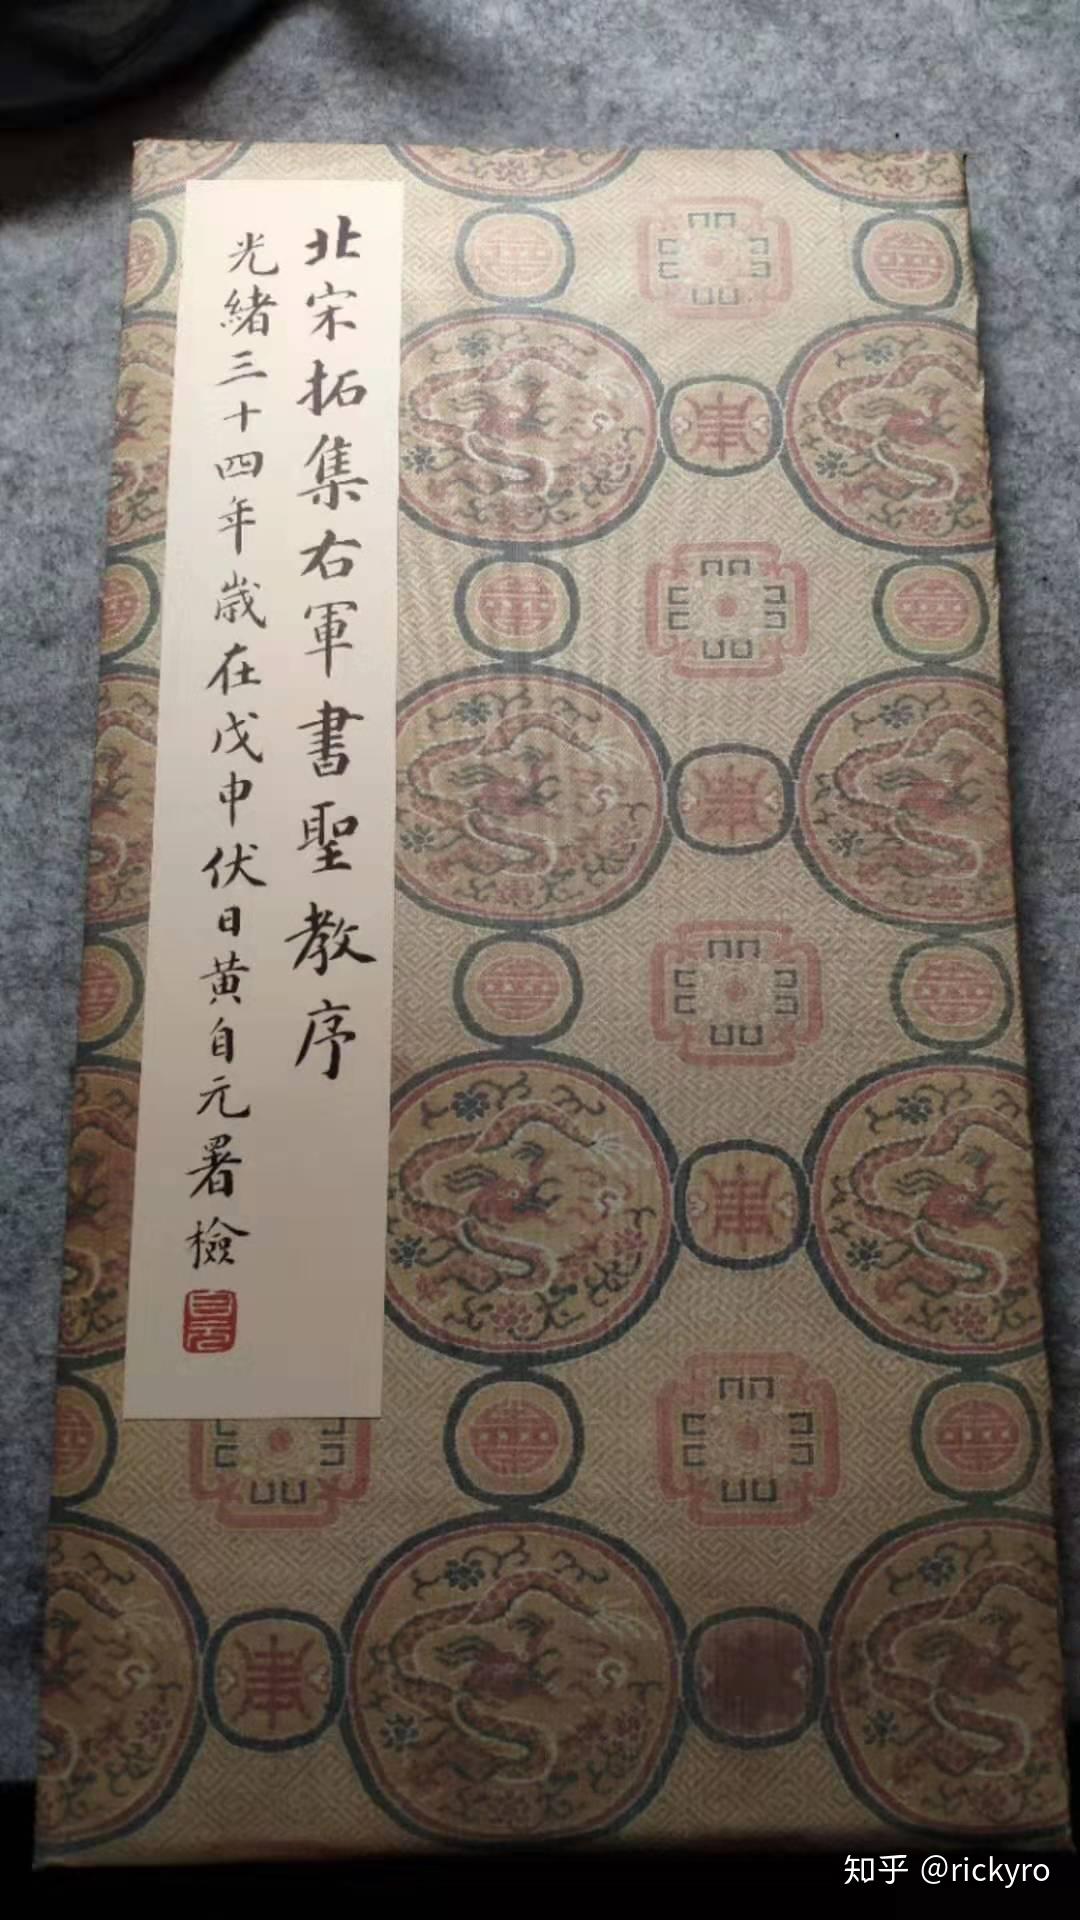 北宋拓集右軍書聖教序
光緒三十四年歲在戊申伏日黃自元署檢
自元
知乎 @rickyro